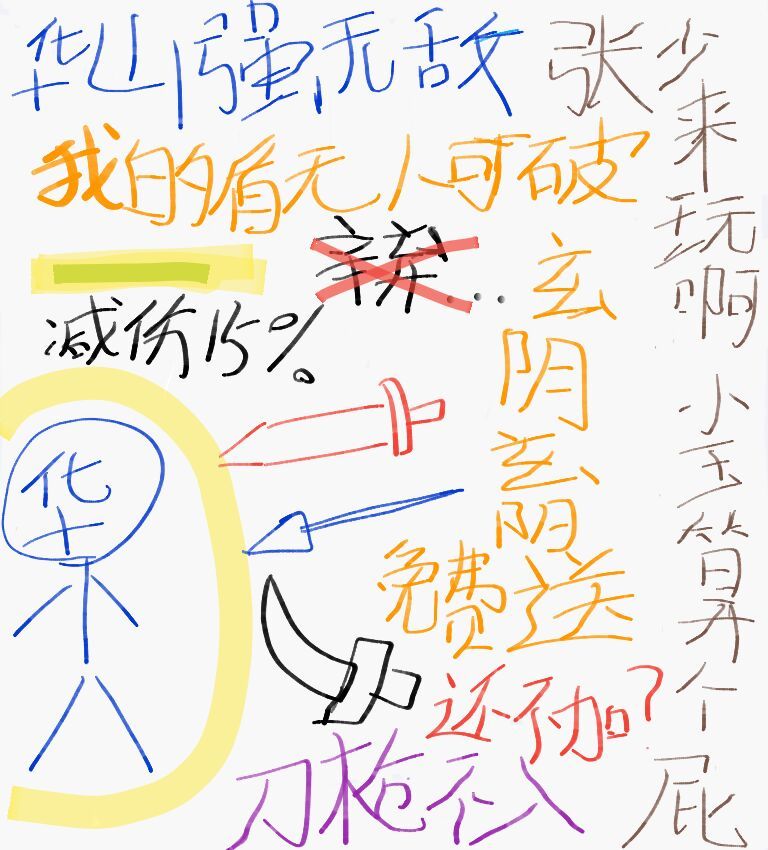 华山强无敌
张少来玩啊
小玉算个屁
我的盾无人可破
辛弃..
减伤15%
玄阴玄阴
免费送
华
还不加?
刀枪不入